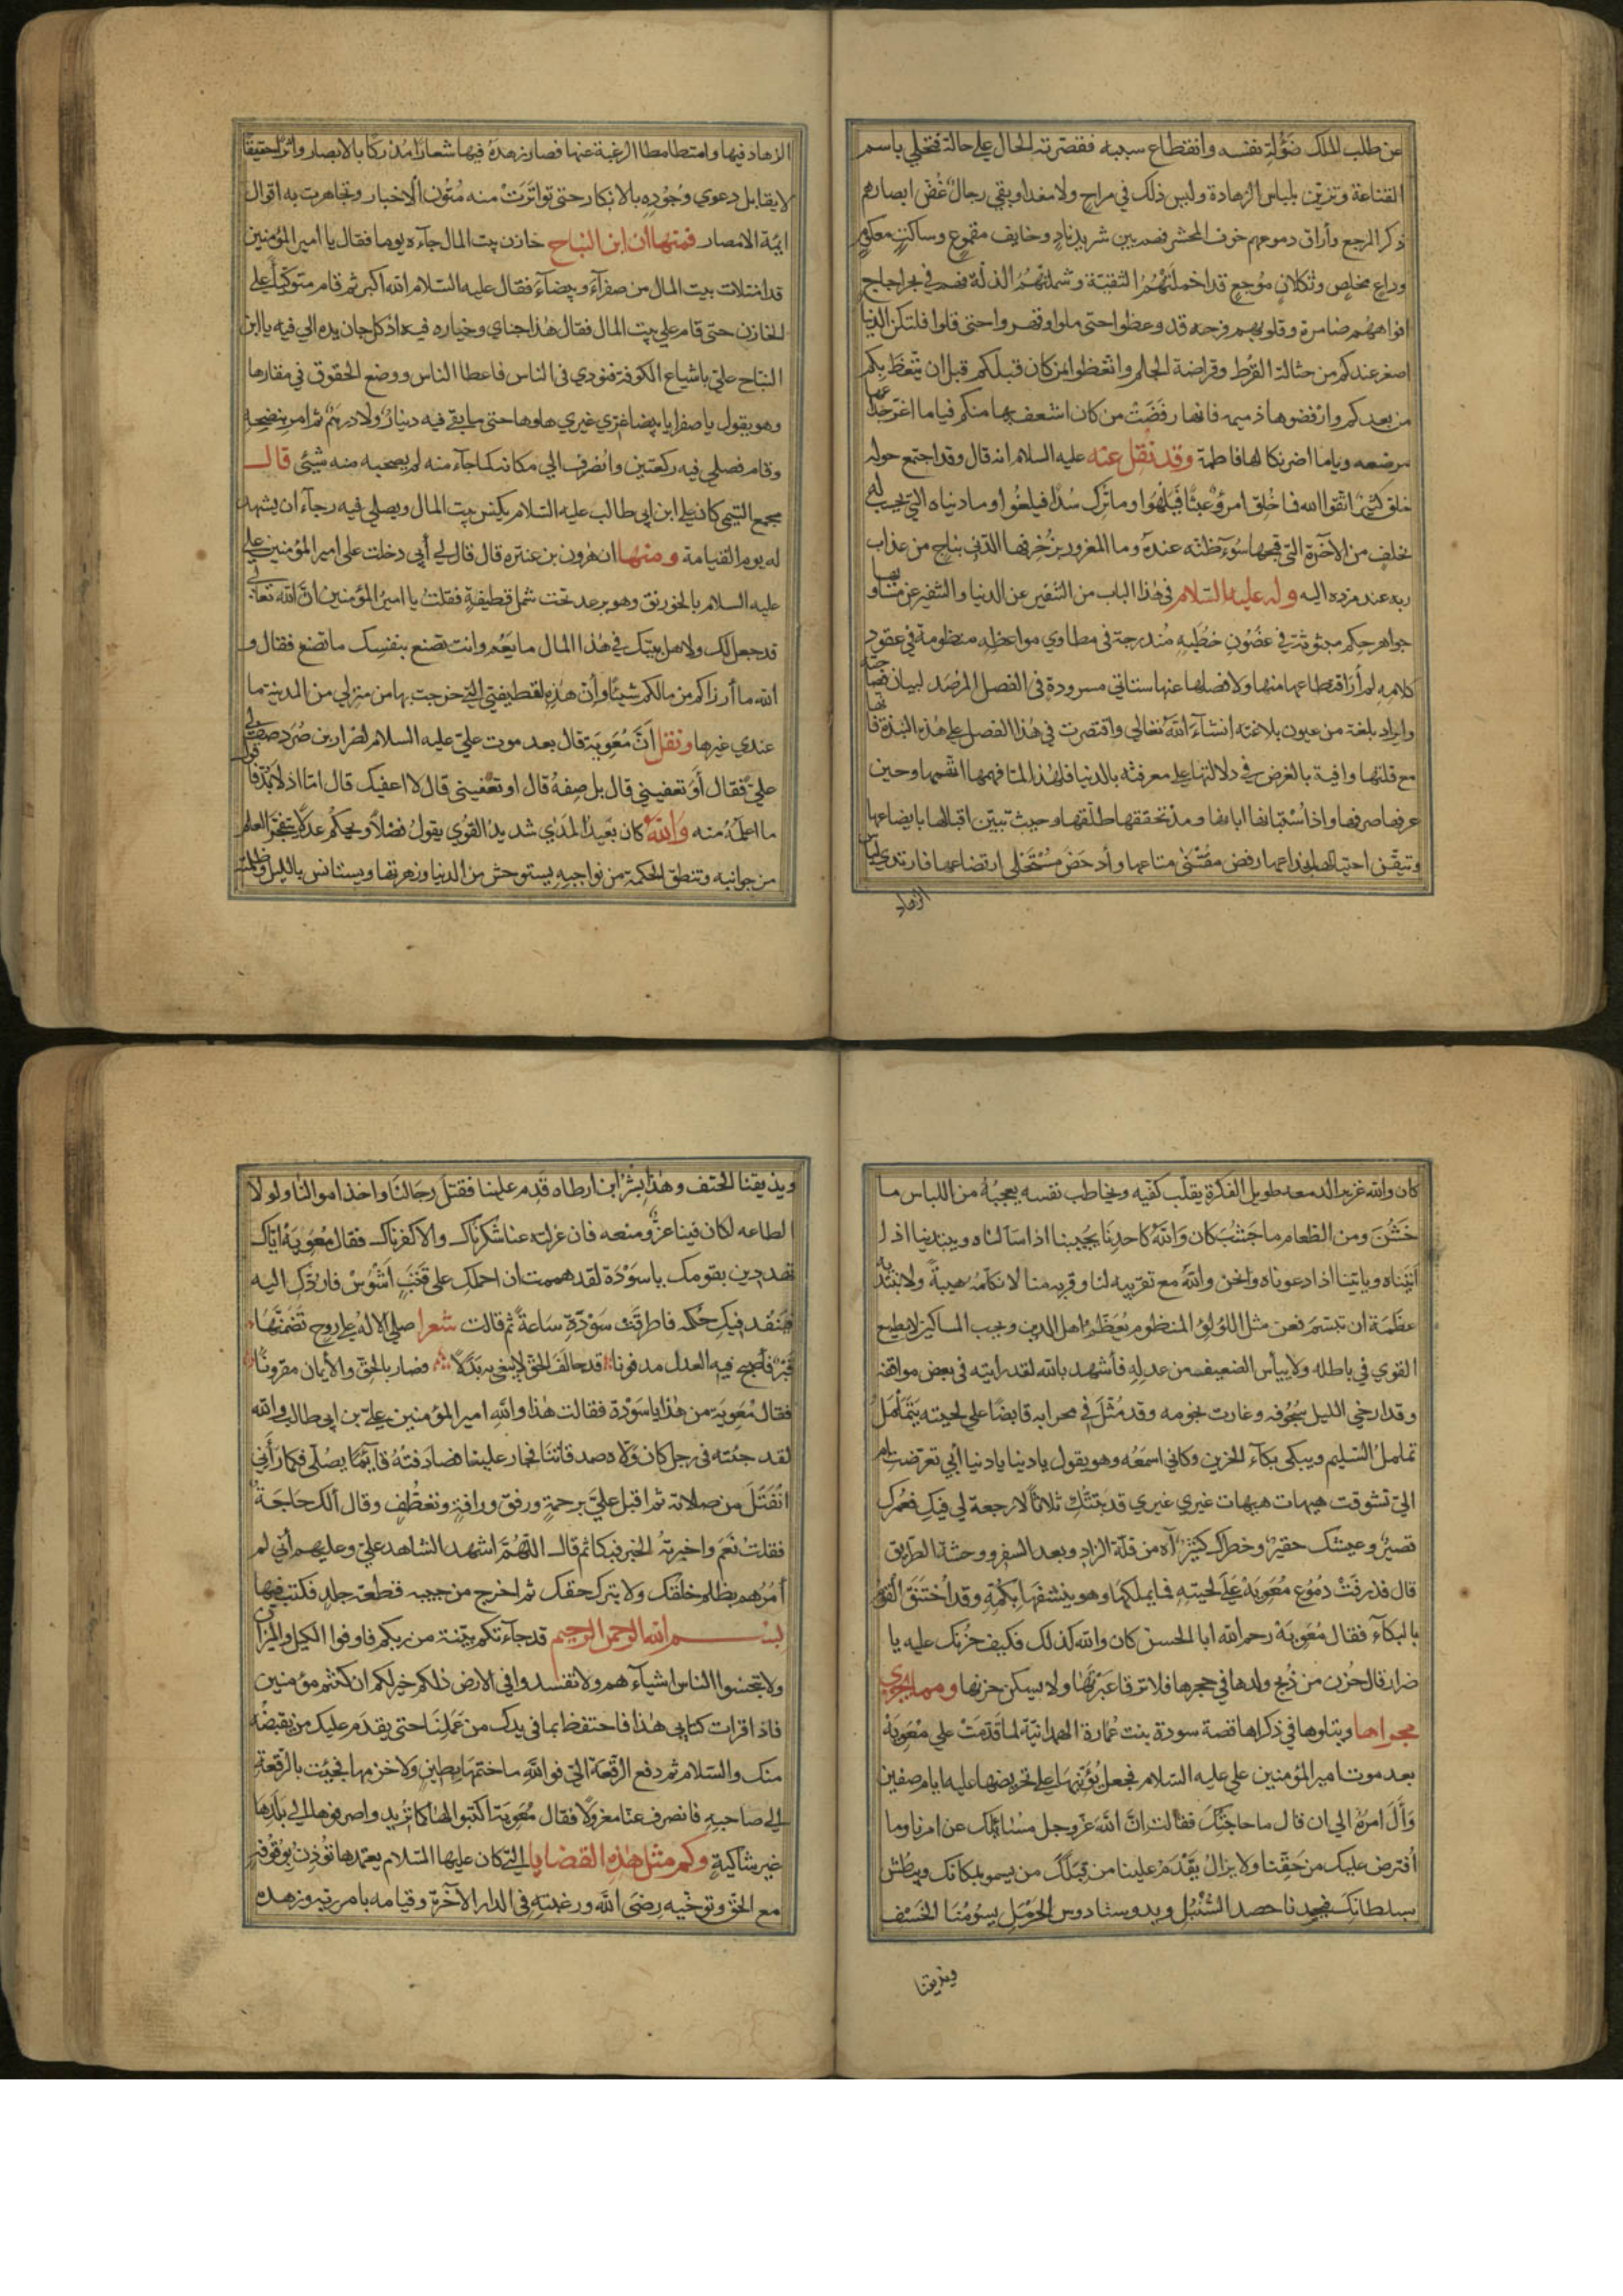 عن طلب الملك ضؤلة نفسه وانقطاع سببه فقصرته الحال على حالة فتحلى باسم
القناعة وتزين بلباس الزهادة وليس ذلك في مراح ولا مغدا وبقي رجال غض ابصارهم
ذكر المرجع وأراق دموعهم خوف المحشر فهم بين شريد ناد وخايف مقموع وساكت مكعوم
وداع مخلص وثكلان موجع قد اخملتهم التقية وشملتهم الذلة فهم في بحر اجاج
افواههم ضامزة وقلوبهم قرحه قد وعظوا حتى ملوا وقهروا حتى قلوا فلتكن الدنيا
اصغر عندكم من حثالة القرظ وقراضة الجلم واتعظوا بمن كان قبلكم قبل ان يتعظ بكم
من بعدكم وارفضوها ذميمه فانها رفضت من كان اشعف بها منكم فياما اغر خداعها
مرضعه وياما اضر نكالها فاطمة وقد نقل عنه عليه السلام انه قال وقد اجتمع حوله
خلق كثير اتقوا الله فما خلق امرؤ عبثا فيلهوا وما ترك سدا فيلغوا وما دنياه التي تحببت له
بخلف من الآخرة التي قبحها سوء ظنه عنده وما المغرور بزخرفها الذي بناج من عذاب
ربه عند مرده اليه وله عليه السلام في هذا الباب من التنفير عن الدنيا والتنفير عن متاعها
جواهر حكم مبثوثة في غضون خطبه مندرجة في مطاوي مواعظه منظومة في عقود
كلامه لم أر اقتطاعها منها ولا فصلها عنها ستاتي مسرودة في الفصل المرصد لبيان فصاحته
وايراد بلغة من عيون بلاغته انشاء الله تعالى واقتصرت في هذا الفصل على هذه النبذة فانها
مع قلتها وافية بالغرض في دلالتها على معرفته بالدنيا فلهذا لما فهمها اتهمها وحين
عرفها صرفها واذا استبانها ابانها ومذ تحققها طلقها وحيث تبين اقبالها بايضاعها
وتيقن احتيالها بخداعها رفض مقتنى متاعها وأدحض مستحلى ارتضاعها فارتدى لباس
الزهاد
الزهاد فيها وامتطا مطا الرغبة عنها فصار زهده فيها شعارا مدركا بالابصار واثرا حقيقا
لا يقابل دعوي وجوده بالانكار حتى تواترت منه متون الاخبار وتجاهرت به اقوال
ايمة الامصار فمنها أن ابن النباح خازن بيت المال جاءه يوما فقال يا امير المؤمنين
قد امتلات بيت المال من صفرآء وبيضآء فقال عليه السلام الله اكبر ثم قام متوكيا على
الخازن حتى قام على بيت المال فقال هذا جناي وخياره فيه اذ كل جان يده الى فيه يا ابن
النباح علي باشياع الكوفة فنودي في الناس فاعطا الناس ووضع الحقوق في مقارها
وهو يقول يا صفرا يا بيضا غري غيري ها وها حتى ما بقى فيه دينار ولا درهم ثم امر بنضحه
وقام فصلى فيه ركعتين وانصرف الي مكانه كما جآء منه لم يصحبه منه شيئى قال
مجمع التيمى كان علي ابن ابى طالب عليه السلام يكنس بيت المال ويصلى فيه رجآء ان يشهد
له يوم القيامة ومنها ان هرون بن عنتره قال قال لي أبي دخلت على امير المؤمنين علي
عليه السلام بالخورنق وهو يرعد تحت شمل قطيفة فقلت يا امير المؤمنين انّ الله تعالى
قد جعل لك ولاهل بيتك في هذا المال ما يعم وانت تصنع بنفسك ما تصنع فقال و
الله ما أرزاكم من مالكم شيئا وأن هذه لقطيفتي التي خرجت بها من منزلي من المدينة ما
عندي غيرها ونقل أن معوية قال بعد موت علي عليه السلام لضرار بن ضرد صف لي
علي فقال أو تعفيني قال بل صفه قال او تعفيني قال لا اعفيك قال امّا اذ لا بد فاقول
ما اعلمه منه والله كان بعيد المدي شديد القوي يقول فضلا ويحكم عدلا يتفجر العلم
من جوانبه وتنطق الحكمة من نواجيه يستوحش من الدنيا وزهرتها ويستانس بالليل وظلمته
كان والله غزير الدمعه طويل الفكرة يقلب كفيه ويخاطب نفسه يعجبه من اللباس ما
خشن ومن الطعام ما جشب كان والله كاحدنا يجيبنا اذا سألناه ويبتدينا اذا
اتيناه وياتينا اذا دعوناه ونحن والله مع تقريبه لنا وقربه منا لا نكلمه هيبة ولا نبتديه
عظمة ان تبسم فعن مثل اللؤلؤ المنظوم يعظم اهل الدين ويحب المساكين لا يطمع
القوي في باطله ولا ييأس الضعيف من عدله فأشهد بالله لقد رايته فى بعض مواقفه
وقد ارخى الليل سجوفه وغارت نجومه وقد مثل في محرابه قابضا علي لحيته يتململ
تململ السليم ويبكى بكآء الحزين وكاني اسمعه وهو يقول يا دنيا يا دنيا أبي تعرضت ام
الىّ تشوقت هيهات هيهات غيري غيري قد بتتك ثلاثا لا رجعة لي فيك فعمرك
قصير وعيشك حقير وخطرك كثير آه من قلة الزاد وبعد السفر ووحشة الطريق
قال فذرفت دموع معوية على لحيته فما يملكها وهو ينشفها بكمه وقد اختنق القوم
بالبكآء فقال معوية رحم الله ابا الحسن كان والله كذلك فكيف حزنك عليه يا
ضرار قال حزن من ذبح ولدها في حجرها فلا ترقا عبرتها ولا يسكن حزنها ومما يجري
مجراها ويتلوها في ذكراها قصة سودة بنت عمارة الهمدانية لما قدمت على معوية
بعد موت امير المؤمنين على عليه السلام فجعل يؤنبها على تحريضها عليه ايام صفين
وآل امره الي ان قال ما حاجتك فقالت ان الله عز وجل مسائلك عن امرنا وما
افترض عليك من حقنا ولا يزال يقدم علينا من قبلك من يسمو بمكانك ويبطش
بسلطانك فيحصدنا حصد السنبل ويدوسنا دوس الحرمل يسومنا الخسف
ويذيقنا
ويذيقنا الحتف وهذا بشر ابن ارطاه قدم علينا فقتل رجالنا واخذ اموالنا ولولا
الطاعه لكان فينا عز ومنعه فان عزلته عنا شكرناك والا كفرناك فقال معوية اياك
تهددين بقومك يا سودة لقد هممت ان احملك على قتب اشوس فاردك اليه
فينفذ فيك حكمه فاطرقت سودة ساعة ثم قالت شعرا صلى الاله على روح تضمنها
قبر فأصبح فيه العدل مدفونا قد حالف الحق لا يبغى به بدلا فصار بالحق والايمان مقرونا
فقال معوية من هذا يا سودة فقالت هذا والله امير المؤمنين علي بن ابى طالب والله
لقد جئته فى رجل كان ولاه صدقاتنا فجار علينا فصادفته قآئما يصلى فلما رأنى
انفتل من صلاته ثم اقبل علىّ برحمة ورفق ورافة وتعطف وقال ألك حاجة
فقلت نعم واخبرته الخبر فبكا ثم قال اللهم اشهد الشاهد علىّ وعليهم أنى لم
أمرهم بظلم خلقك ولا بترك حقك ثم اخرج من جيبه قطعة جلد فكتب فيها
بسم الله الرحمن الرحيم قد جآءتكم بينة من ربكم فاوفوا الكيل والميزان
ولا تبخسوا الناس اشيآءهم ولا تفسدوا في الارض ذلكم خير لكم ان كنتم مؤمنين
فاذا قرات كتابى هذا فاحتفظ بما فى يدك من عملنا حتى يقدم عليك من يقبضه
منك والسلام ثم دفع الرقعة الىّ فو الله ما ختمها بطين ولا خزمها فجئت بالرقعة
الى صاحبه فانصرف عنا معزولا فقال معوية اكتبوا لها كما تريد واصرفوها الى بلدها
غير شاكية وكم مثل هذه القضايا التي كان عليها السلام يعتمدها تؤذن بوقوفه
مع الحق وتوخيه رضى الله ورغبته فى الدار الآخرة وقيامه بامر ربه وزهده